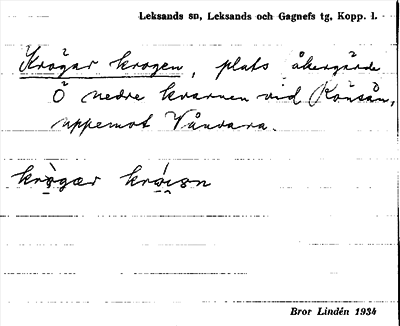 Leksands sn, Leksands och Gagnefs tg, Kopp. l.
Krogar krogen, plats åkergärde
Ö nedre kvarnen vid Rönsån,
uppemot Våndara.
Bror Lindén 1934